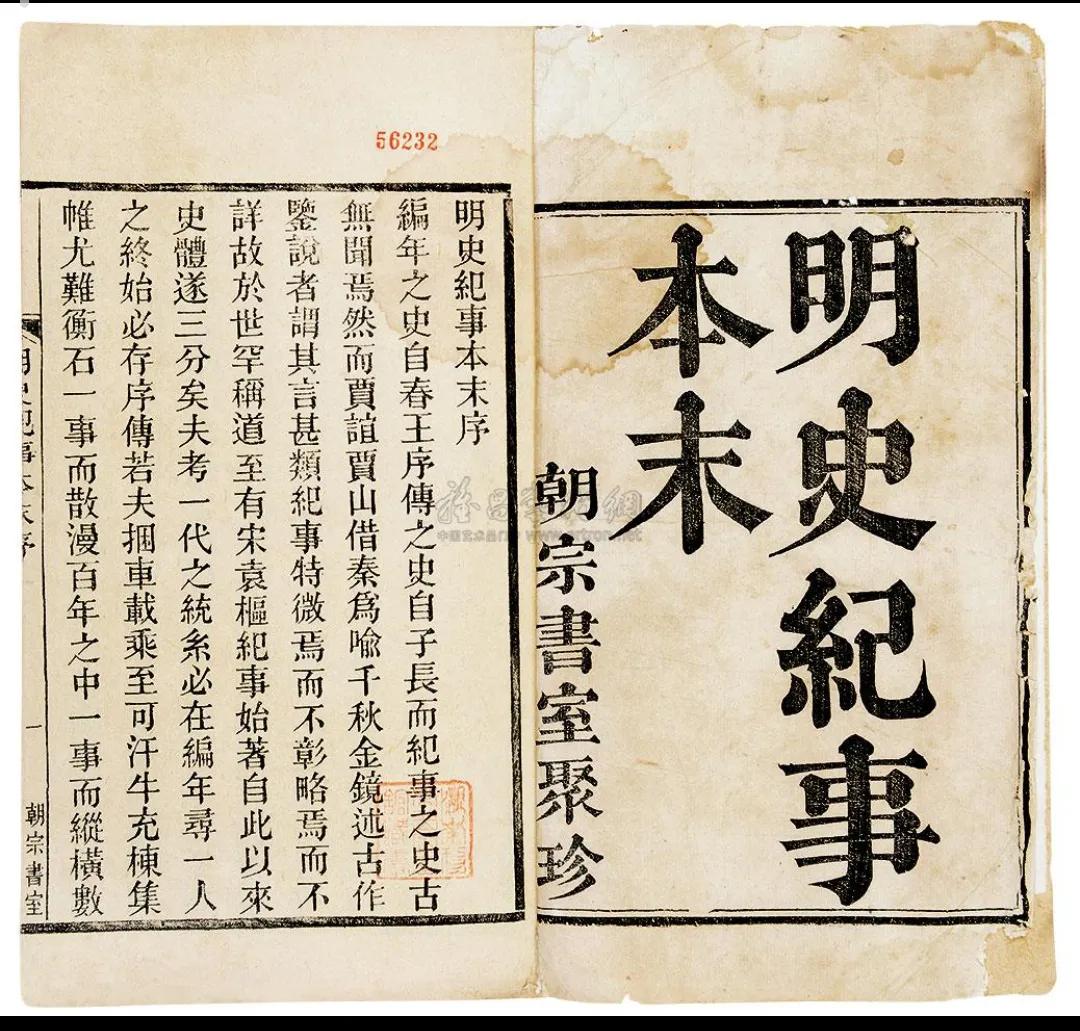 明史紀事
本末
朝宗書室聚珍
56232
明史紀事本末序
編年之史自春王序傳之史自子長而紀事之史古
無聞焉然而賈誼賈山借秦爲喻千秋金鏡述古作
鑒說者謂其言甚類紀事特微焉而不彰略焉而不
詳故於世罕稱道至有宋袁樞紀事始著自此以來
史體遂三分矣夫考一代之統系必在編年尋一人
之終始必存序傳若夫捆車載乘至可汗牛充棟集
帷尤難衡石一事而散漫百年之中一事而縱橫數
明史紀事本末序
一
朝宗書室
www.artron.net